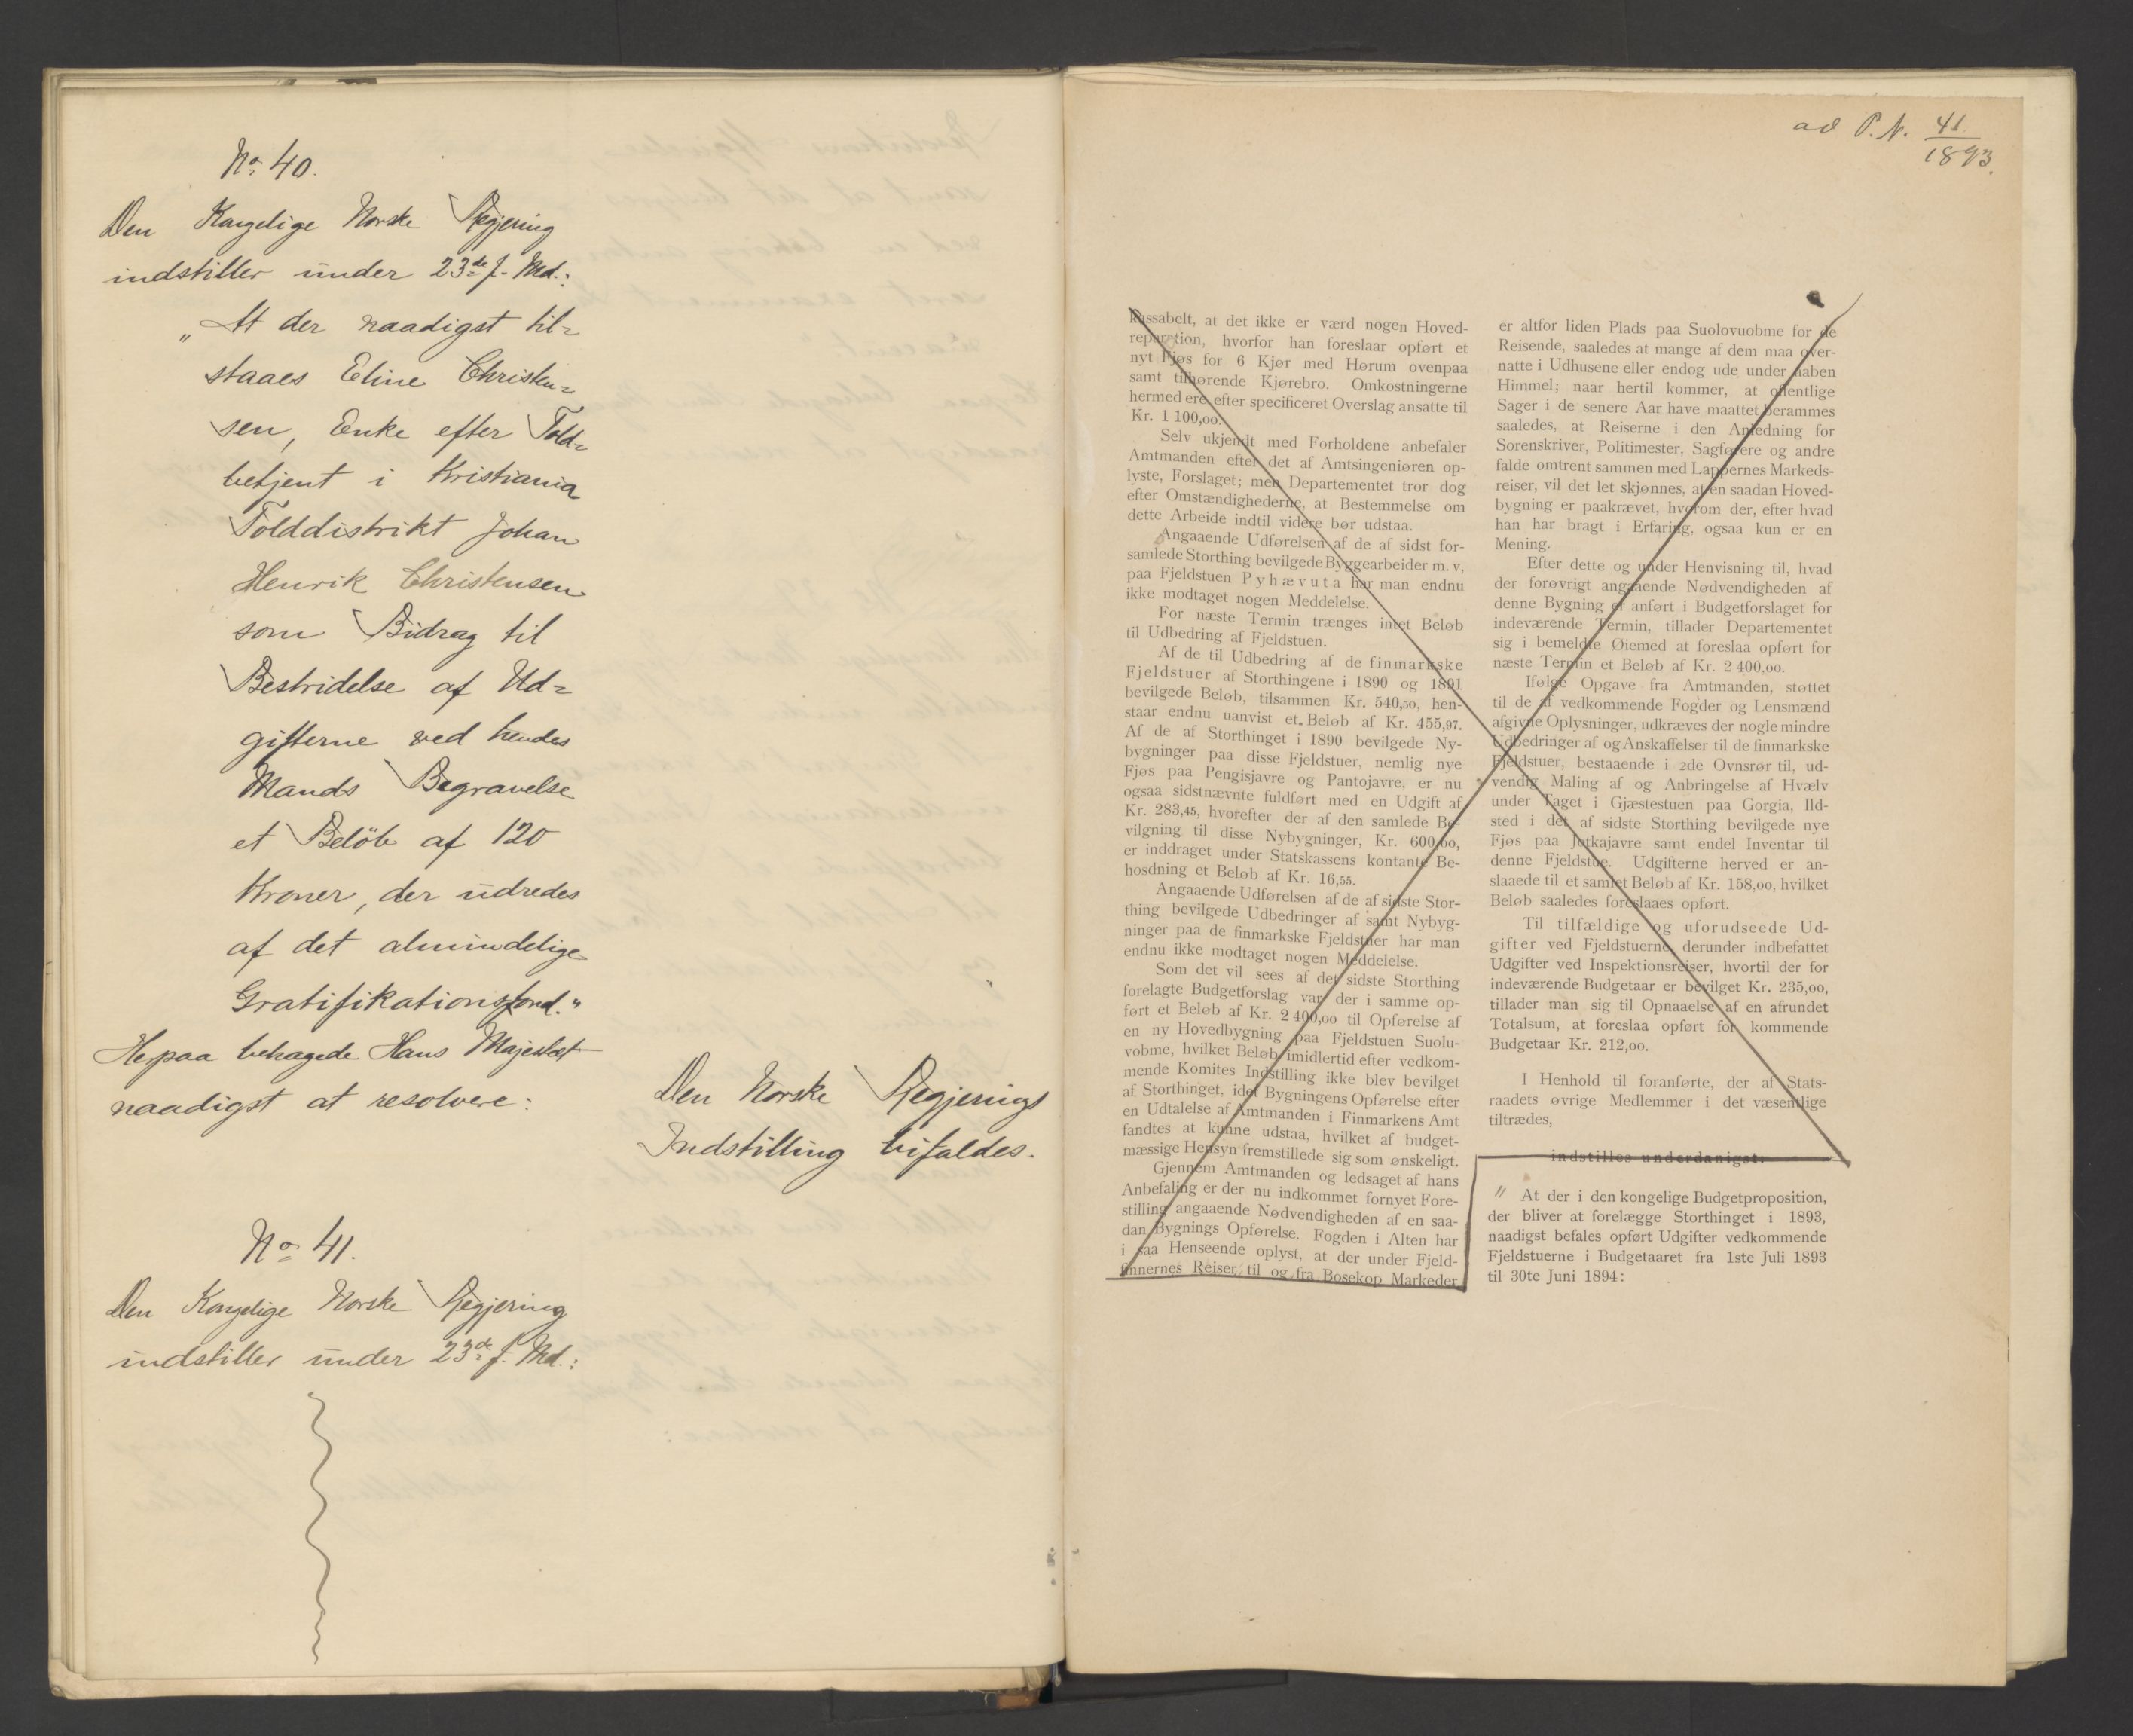 No. 40.
Den Kongelige Norske Regjering
indstiller under 23de f. Md.:
„At der naadigst til=
staaes Eline Christen=
sen, Enke efter Told=
betjent i Kristiania
Tolddistrikt Johan
Henrik Christensen
som Bidrag til
Bestridelse af Ud=
gifterne ved hendes
Mands Begravelse
et Beløb af 120
Kroner, der udredes
af det almindelige
Gratifikationsfond."
Herpaa behagede Hans Majestæt
naadigst at resolvere:
Den Norske Regjerings
Indstilling bifaldes.
No. 41.
Den Kongelige Norske Regjering
indstiller under 23de f. Md.:
ad P. N. 41/1893.
kassabelt, at det ikke er værd nogen Hoved-
reparation, hvorfor han foreslaar opført et
nyt Fjøs for 6 Kjør med Hørum ovenpaa
samt tilhørende Kjørebro. Omkostningerne
hermed ere efter specificeret Overslag ansatte til
Kr. 1 100,00.
Selv ukjendt med Forholdene anbefaler
Amtmanden efter det af Amtsingeniøren op-
lyste, Forslaget; men Departementet tror dog
efter Omstændighederne, at Bestemmelse om
dette Arbeide indtil videre bør udstaa.
Angaaende Udførelsen af de af sidst for-
samlede Storthing bevilgede Byggearbeider m. v,
paa Fjeldstuen Pyhævuta har man endnu
ikke modtaget nogen Meddelelse.
For næste Termin trænges intet Beløb
til Udbedring af Fjeldstuen.
Af de til Udbedring af de finmarkske
Fjeldstuer af Storthingene i 1890 og 1891
bevilgede Beløb, tilsammen Kr. 540,50, hen-
staar endnu uanvist et Beløb af Kr. 455,97.
Af de af Storthinget i 1890 bevilgede Ny-
bygninger paa disse Fjeldstuer, nemlig nye
Fjøs paa Pengisjavre og Pantojavre, er nu
ogsaa sidstnævnte fuldført med en Udgift af
Kr. 283,45, hvorefter der af den samlede Be-
vilgning til disse Nybygninger, Kr. 600,00,
er inddraget under Statskassens kontante Be-
hosdning et Beløb af Kr. 16,55.
Angaaende Udførelsen af de af sidste Stor-
thing bevilgede Udbedringer af samt Nybyg-
ninger paa de finmarkske Fjeldstuer har man
endnu ikke modtaget nogen Meddelelse.
Som det vil sees af det sidste Storthing
forelagte Budgetforslag var der i samme op-
ført et Beløb af Kr. 2 400,00 til Opførelse af
en ny Hovedbygning paa Fjeldstuen Suolu-
vobme, hvilket Beløb imidlertid efter vedkom-
mende Komites Indstilling ikke blev bevilget
af Storthinget, idet Bygningens Opførelse efter
en Udtalelse af Amtmanden i Finmarkens Amt
fandtes at kunne udstaa, hvilket af budget-
mæssige Hensyn fremstillede sig som ønskeligt.
Gjennem Amtmanden og ledsaget af hans
Anbefaling er der nu indkommet fornyet Fore-
stilling angaaende Nødvendigheden af en saa-
dan Bygnings Opførelse. Fogden i Alten har
i saa Henseende oplyst, at der under Fjeld-
finnernes Reiser til og fra Bosekop Markeder
er altfor liden Plads paa Suolovuobme for de
Reisende, saaledes at mange af dem maa over-
natte i Udhusene eller endog ude under aaben
Himmel; naar hertil kommer, at offentlige
Sager i de senere Aar have maattet berammes
saaledes, at Reiserne i den Anledning for
Sorenskriver, Politimester, Sagførere og andre
falde omtrent sammen med Lappernes Markeds-
reiser, vil det let skjønnes, at en saadan Hoved-
bygning er paakrævet, hvorom der, efter hvad
han har bragt i Erfaring, ogsaa kun er en
Mening.
Efter dette og under Henvisning til, hvad
der forøvrigt angaaende Nødvendigheden af
denne Bygning er anført i Budgetforslaget for
indeværende Termin, tillader Departementet
sig i bemeldte Øiemed at foreslaa opført for
næste Termin et Beløb af Kr. 2 400,00.
Ifølge Opgave fra Amtmanden, støttet
til de af vedkommende Fogder og Lensmænd
afgivne Oplysninger, udkræves der nogle mindre
Udbedringer af og Anskaffelser til de finmarkske
Fjeldstuer, bestaaende i 2de Ovnsrør til, ud-
vendig Maling af og Anbringelse af Hvælv
under Taget i Gjæstestuen paa Gorgia, Ild-
sted i det af sidste Storthing bevilgede nye
Fjøs paa Jotkajavre samt endel Inventar til
denne Fjeldstue. Udgifterne herved er an-
slaaede til et samlet Beløb af Kr. 158,00, hvilket
Beløb saaledes foreslaaes opført.
Til tilfældige og uforudseede Ud-
gifter ved Fjeldstuerne, derunder indbefattet
Udgifter ved Inspektionsreiser, hvortil der for
indeværende Budgetaar er bevilget Kr. 235,00,
tillader man sig til Opnaaelse af en afrundet
Totalsum, at foreslaa opført for kommende
Budgetaar Kr. 212,00.
I Henhold til foranførte, der af Stats-
raadets øvrige Medlemmer i det væsentlige
tiltrædes,
indstilles underdanigst:
„ At der i den kongelige Budgetproposition,
der bliver at forelægge Storthinget i 1893,
naadigst befales opført Udgifter vedkommende
Fjeldstuerne i Budgetaaret fra 1ste Juli 1893
til 30te Juni 1894: